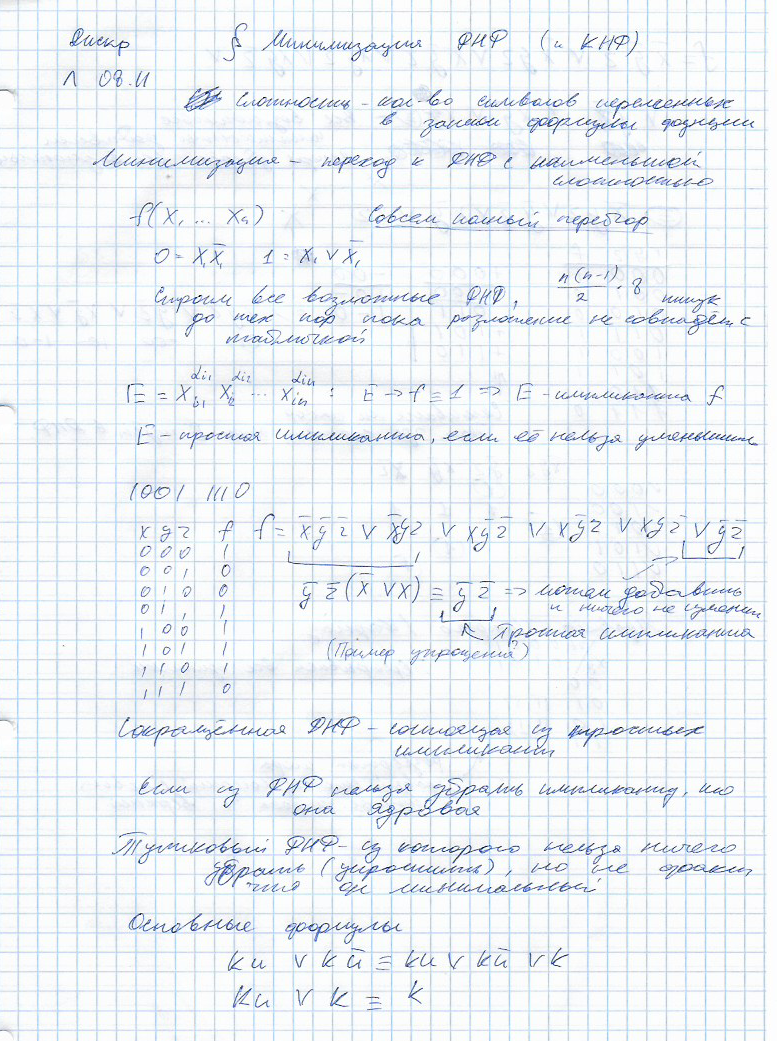 Дискр § Минимизация ДНФ (и КНФ)
Л 08.11
Сложность - кол-во символов переменных
в записи формулы функции
Минимизация - переход к ДНФ с наименьшей
сложностью
f(x₁ ... xₙ) Совсем полный перебор
0 = x₁x̄₁ 1 = x₁ ∨ x̄₁
Строим все возможные ДНФ, n(n-1)/2 · 8 штук
до тех пор пока разложение не совпадёт с
табличкой
E = x_{i1}^{αi1} x_{i2}^{αi2} ... x_{in}^{αin} : E → f ≡ 1 ⇒ E - импликанта f
E - простая импликанта, если её нельзя уменьшить
1001 1110
x y z f f = x̄ȳz̄ ∨ x̄yz ∨ xȳz̄ ∨ xȳz ∨ xyz̄ ∨ ȳz̄
0 0 0 1
0 0 1 0
0 1 0 0 ȳz̄(x̄ ∨ x) ≡ ȳz̄ ⇒ можем добавить
0 1 1 1 и ничего не изменим
1 0 0 1 простая импликанта
1 0 1 1 (Пример упрощения)
1 1 0 1
1 1 1 0
Сокращённая ДНФ - состоящая из простых
импликант
Если из ДНФ нельзя убрать импликанту, то
она ядровая
Тупиковый ДНФ - из которого нельзя ничего
убрать (упростить), но не факт
что он минимальный
Основные формулы
Kи ∨ Kū ≡ Kи ∨ Kū ∨ K
Kи ∨ K ≡ K